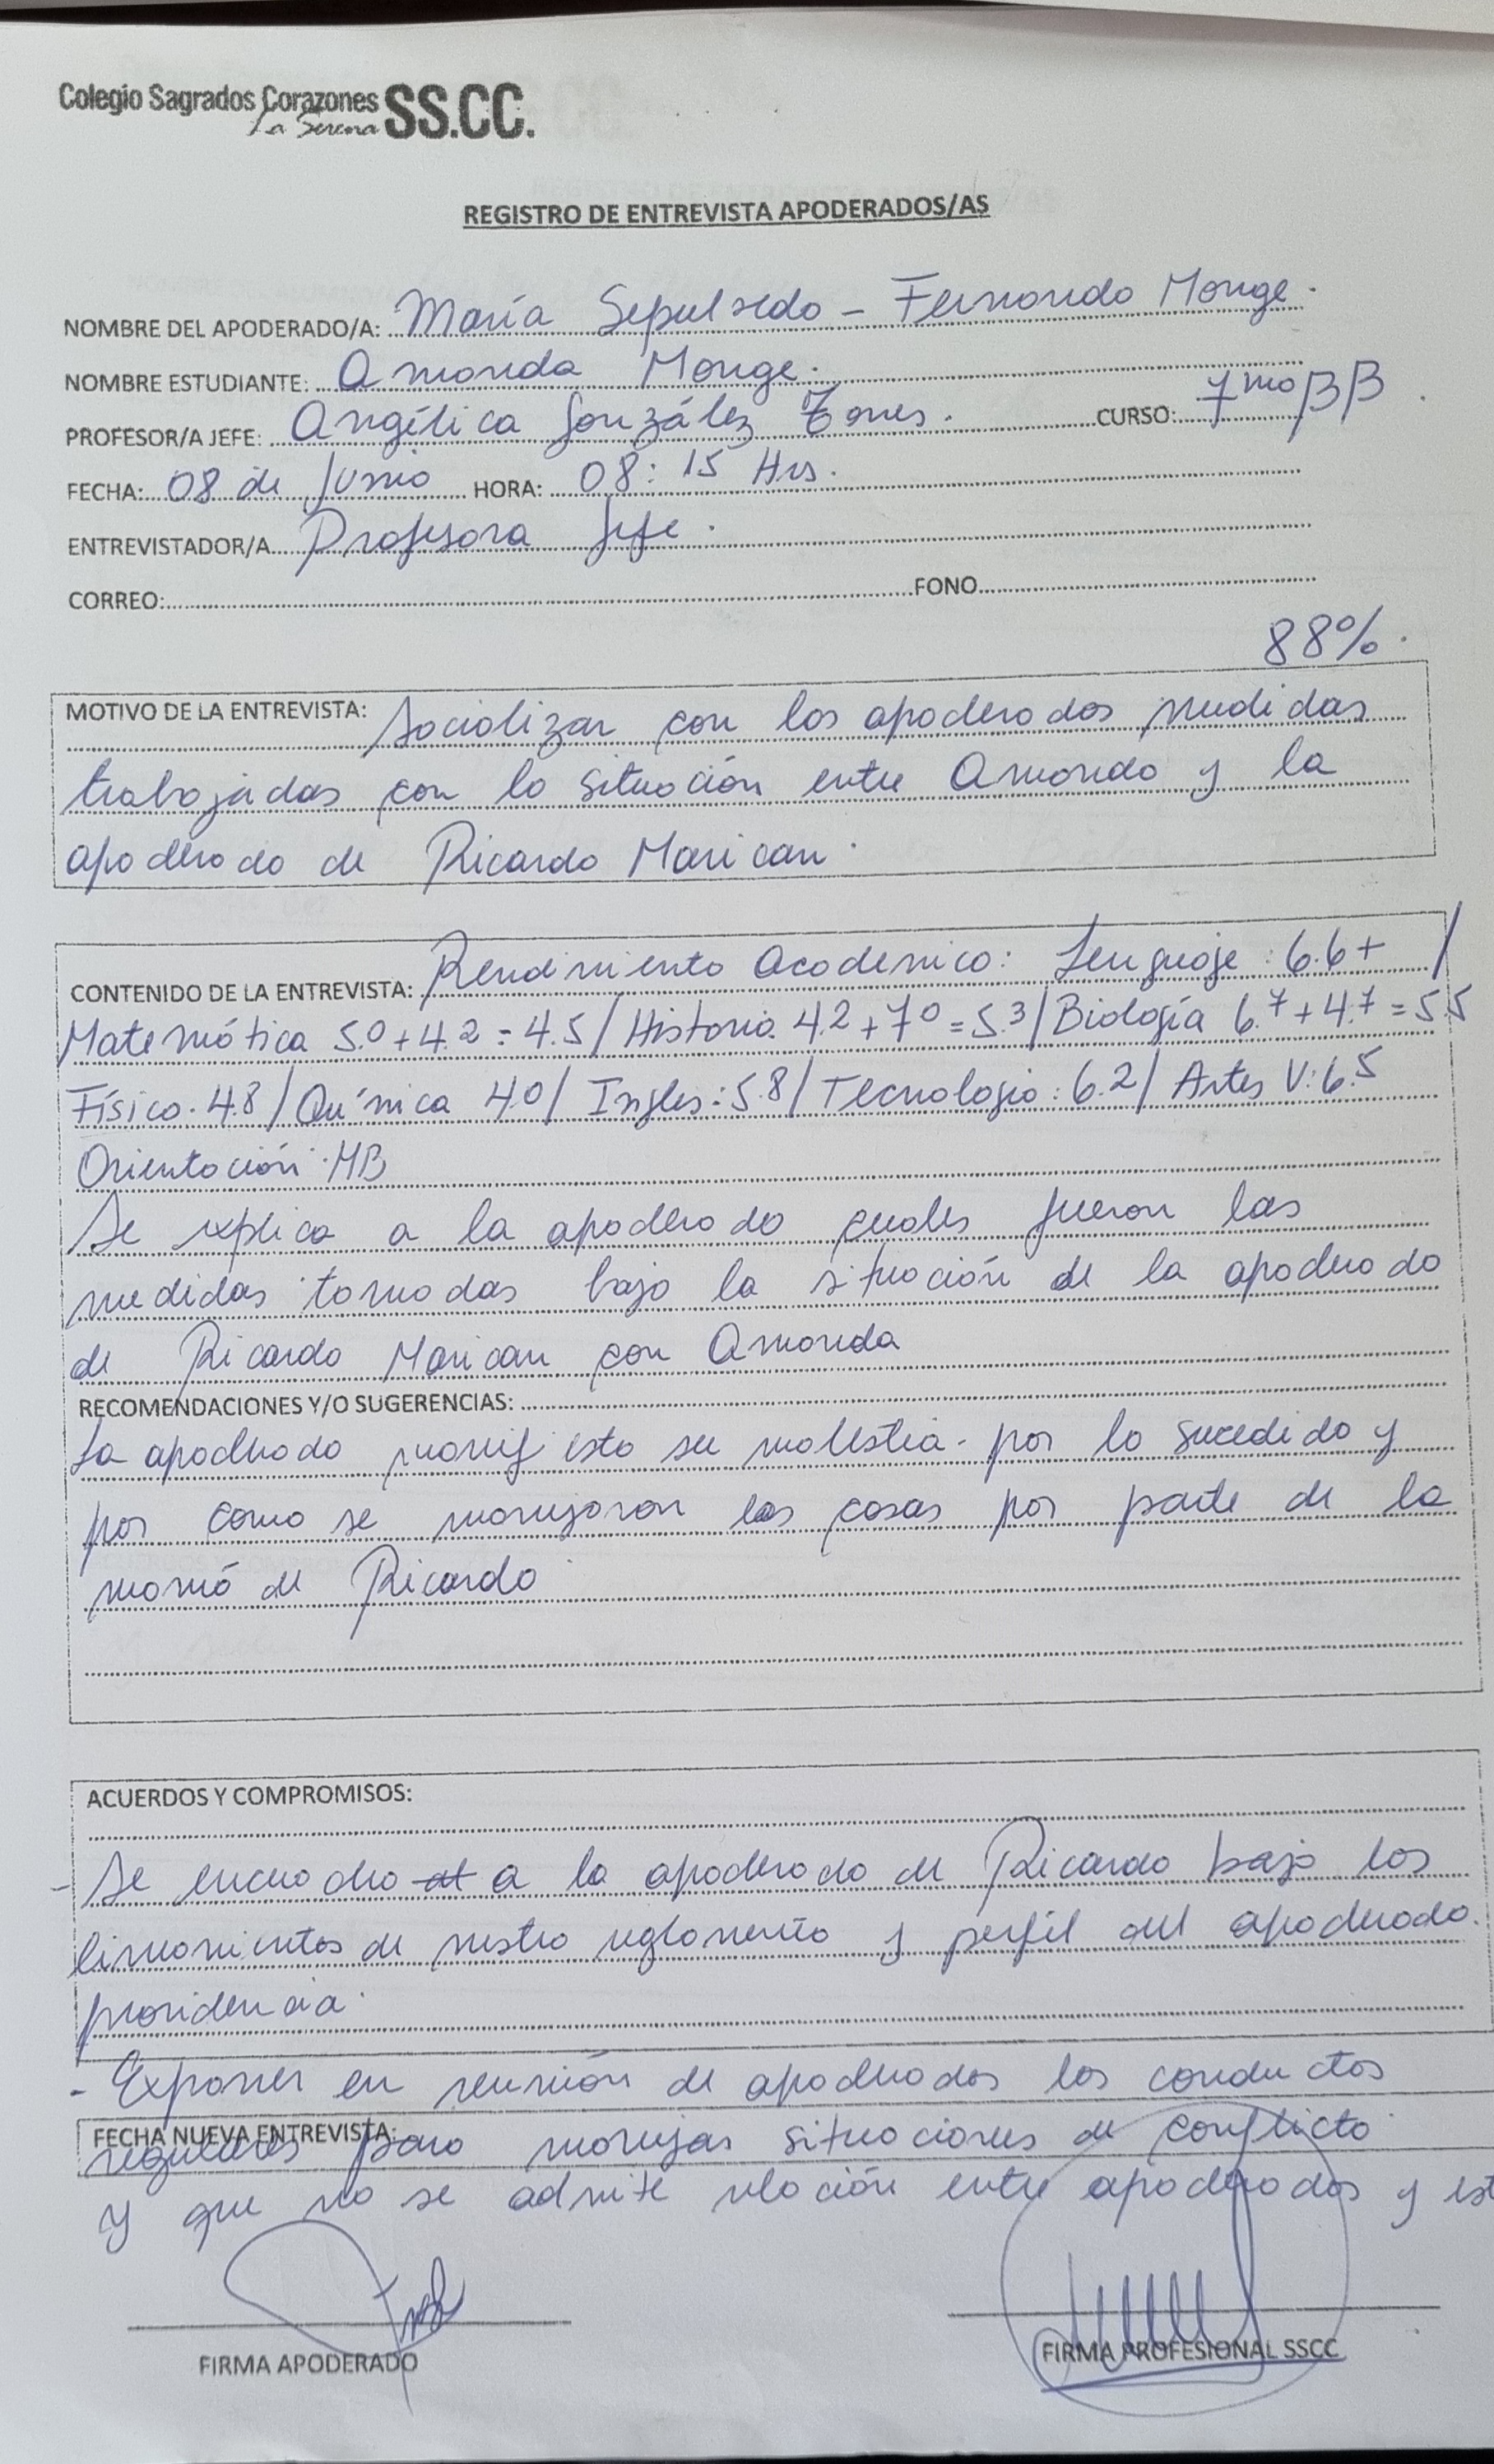 Colegio Sagrados Corazones SS.CC.
La Serena
REGISTRO DE ENTREVISTA APODERADOS/AS
NOMBRE DEL APODERADO/A: María Sepulveda - Fernando Monge.
NOMBRE ESTUDIANTE: Amanda Monge.
PROFESOR/A JEFE: Angélica González Torres. CURSO: 7mo BB
FECHA: 08 de Junio HORA: 08:15 Hrs.
ENTREVISTADOR/A Profesora Jefe.
CORREO: FONO
88%.
MOTIVO DE LA ENTREVISTA: Socializar con los apoderados medidas
trabajadas con la situación entre Amanda y la
apoderada de Ricardo Marican.
CONTENIDO DE LA ENTREVISTA: Rendimiento Academico: Lenguaje: 6.6+ /
Matemática 5.0+4.2=4.5/ Historia. 4.2+7.0=5.3/ Biología 6.7+4.7=5.5
Física. 4.8/ Química 4.0/ Ingles: 5.8/ Tecnología: 6.2/ Artes V: 6.5
Orientación: MB
Se explica a la apoderada cuales fueron las
medidas tomadas bajo la situación de la apoderada
de Ricardo Marican con Amanda
RECOMENDACIONES Y/O SUGERENCIAS:
La apoderada manifiesta su molestia por lo sucedido y
por como se manejaron las cosas por parte de la
mamá de Ricardo
ACUERDOS Y COMPROMISOS:
- Se encuadra a la apoderada de Ricardo bajo los
lineamientos de nuestro reglamento y perfil del apoderado.
providencia.
- Exponer en reunión de apoderados los conductos
FECHA NUEVA ENTREVISTA:
regulares para manejar situaciones de conflicto
y que no se admite relación entre apoderados y est
FIRMA APODERADO
FIRMA PROFESIONAL SSCC